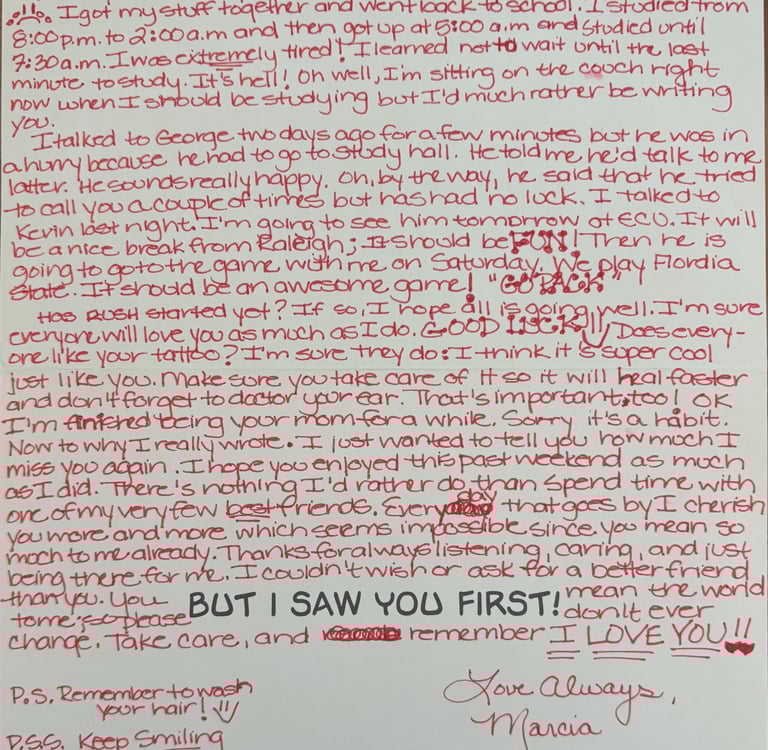 !! I got my stuff together and went back to school. I studied from
8:00p.m. to 2:00a.m and then got up at 5:00 a.m and studied until
7:30a.m. I was extremely tired! I learned not to wait until the last
minute to study. It's hell! Oh well, I'm sitting on the couch right
now when I should be studying but I'd much rather be writing
you.
I talked to George two days ago for a few minutes but he was in
a hurry because he had to go to study hall. He told me he'd talk to me
latter. He sounds really happy. Oh, by the way, he said that he tried
to call you a couple of times but has had no luck. I talked to
Kevin last night. I'm going to see him tomorrow at ECU. It will
be a nice break from Raleigh; It should be FUN! Then he is
going to go to the game with me on Saturday. We play Flordia
State. It should be an awesome game! "GO PACK"
Has RUSH started yet? If so, I hope all is going well. I'm sure
everyone will love you as much as I do. GOOD LUCK!! Does every-
one like your tattoo? I'm sure they do. I think it's super cool
just like you. Make sure you take care of it so it will heal faster
and don't forget to doctor your ear. That's important, too! OK
I'm finished being your mom for a while. Sorry it's a habit.
Now to why I really wrote. I just wanted to tell you how much I
miss you again. I hope you enjoyed this past weekend as much
as I did. There's nothing I'd rather do than spend time with
one of my very few best friends. Every day that goes by I cherish
you more and more which seems impossible since you mean so
much to me already. Thanks for always listening, caring, and just
being there for me. I couldn't wish or ask for a better friend
than you. You mean the world
BUT I SAW YOU FIRST!
to me so please don't ever
change. Take care, and remember I LOVE YOU!!
Love Always,
Marcia
P.S. Remember to wash
your hair!
P.S.S. Keep Smiling